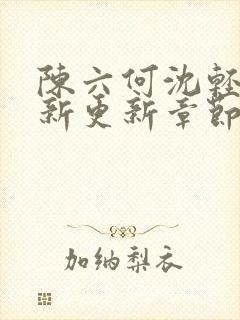 陳六何沈輕
新更新章節
加纳梨衣